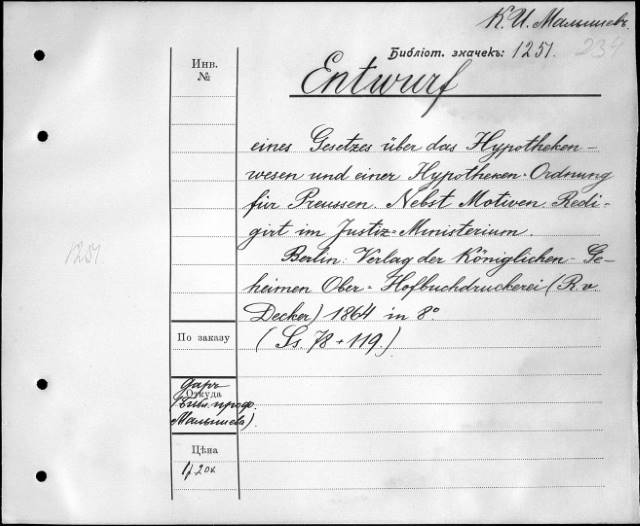 К. И. Малышевъ.
Библіот. значекъ: 1251. 234
Инв.
№
Entwurf
eines Gesetzes über das Hypotheken-
wesen und einer Hypotheken-Ordnung
für Preussen. Nebst Motiven. Redi-
girt im Justiz-Ministerium.
1251.
Berlin: Verlag der Königlichen Ge-
heimen Ober-Hofbuchdruckerei (R. v.
Decker) 1864 in 8°
По заказу
(Ss. 78 + 119.)
Откуда
даръ
(Библ. проф.
Малышева).
Цѣна
1 р. 20 к.